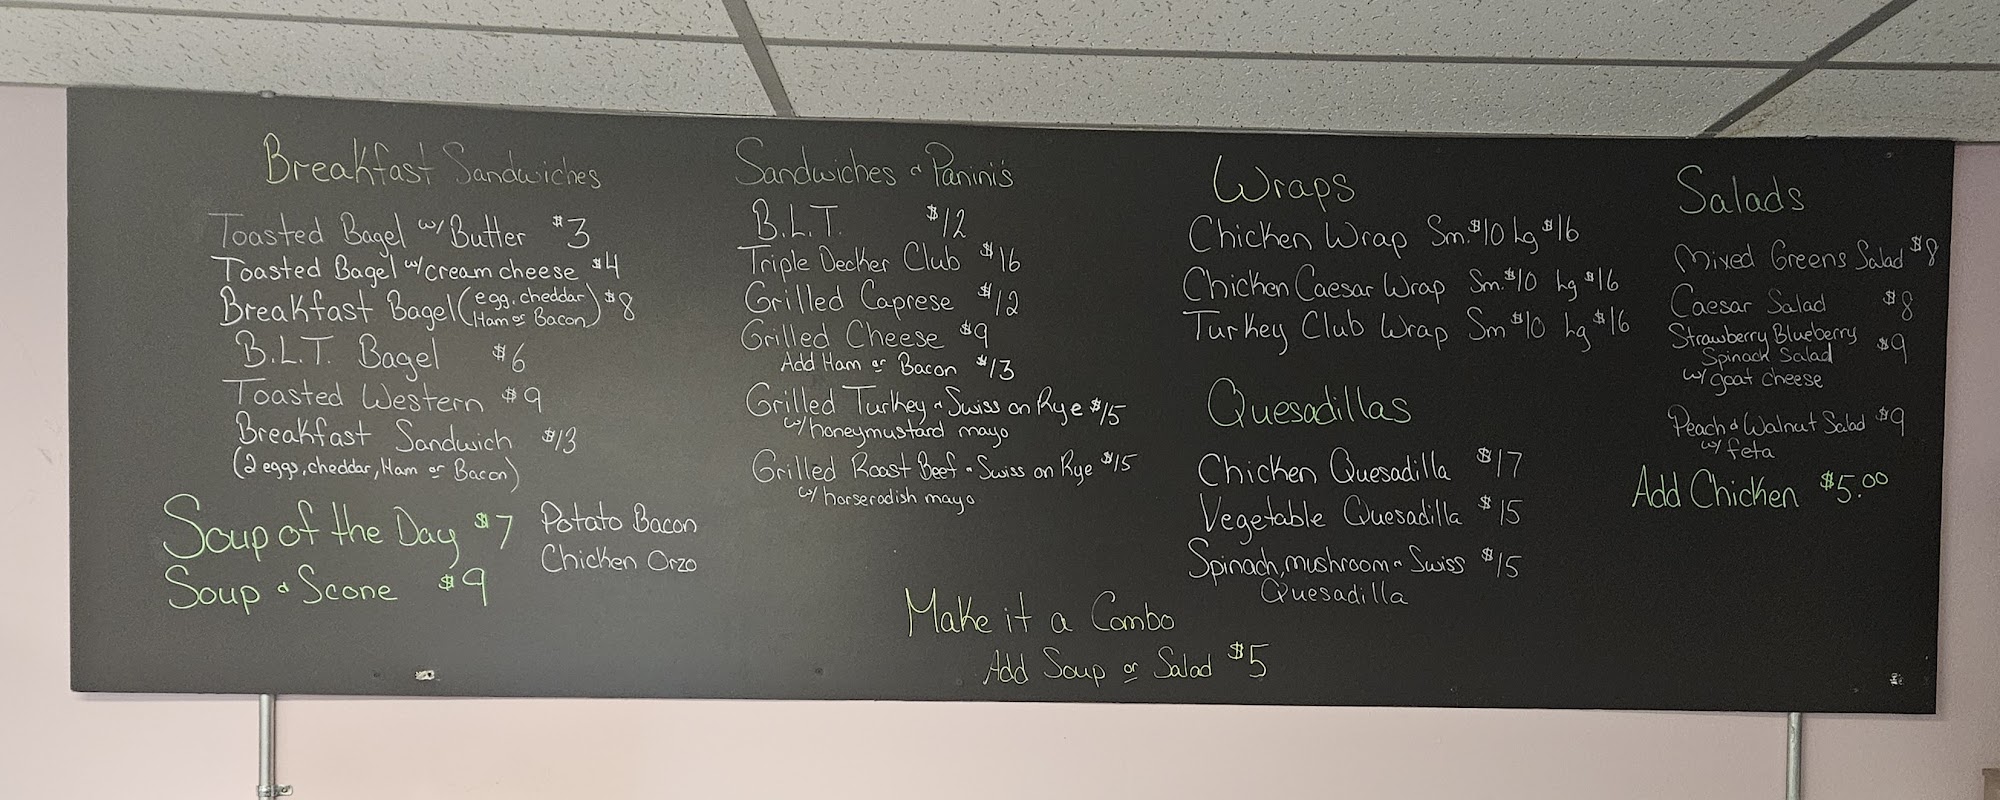 Breakfast Sandwiches
Toasted Bagel w/ Butter $3
Toasted Bagel w/ cream cheese $4
Breakfast Bagel (egg, cheddar, Ham or Bacon) $8
B.L.T. Bagel $6
Toasted Western $9
Breakfast Sandwich $13
(2 eggs, cheddar, Ham or Bacon)
Soup of the Day $7
Potato Bacon
Chicken Orzo
Soup & Scone $9
Sandwiches & Panini's
B.L.T. $12
Triple Decker Club $16
Grilled Caprese $12
Grilled Cheese $9
Add Ham or Bacon $13
Grilled Turkey & Swiss on Rye $15
w/ honeymustard mayo
Grilled Roast Beef & Swiss on Rye $15
w/ horseradish mayo
Make it a Combo
Add Soup or Salad $5
Wraps
Chicken Wrap Sm. $10 Lg $16
Chicken Caesar Wrap Sm. $10 Lg $16
Turkey Club Wrap Sm $10 Lg $16
Quesadillas
Chicken Quesadilla $17
Vegetable Quesadilla $15
Spinach, mushroom & Swiss $15
Quesadilla
Salads
Mixed Greens Salad $8
Caesar Salad $8
Strawberry Blueberry
Spinach Salad $9
w/ goat cheese
Peach & Walnut Salad $9
w/ feta
Add Chicken $5.00